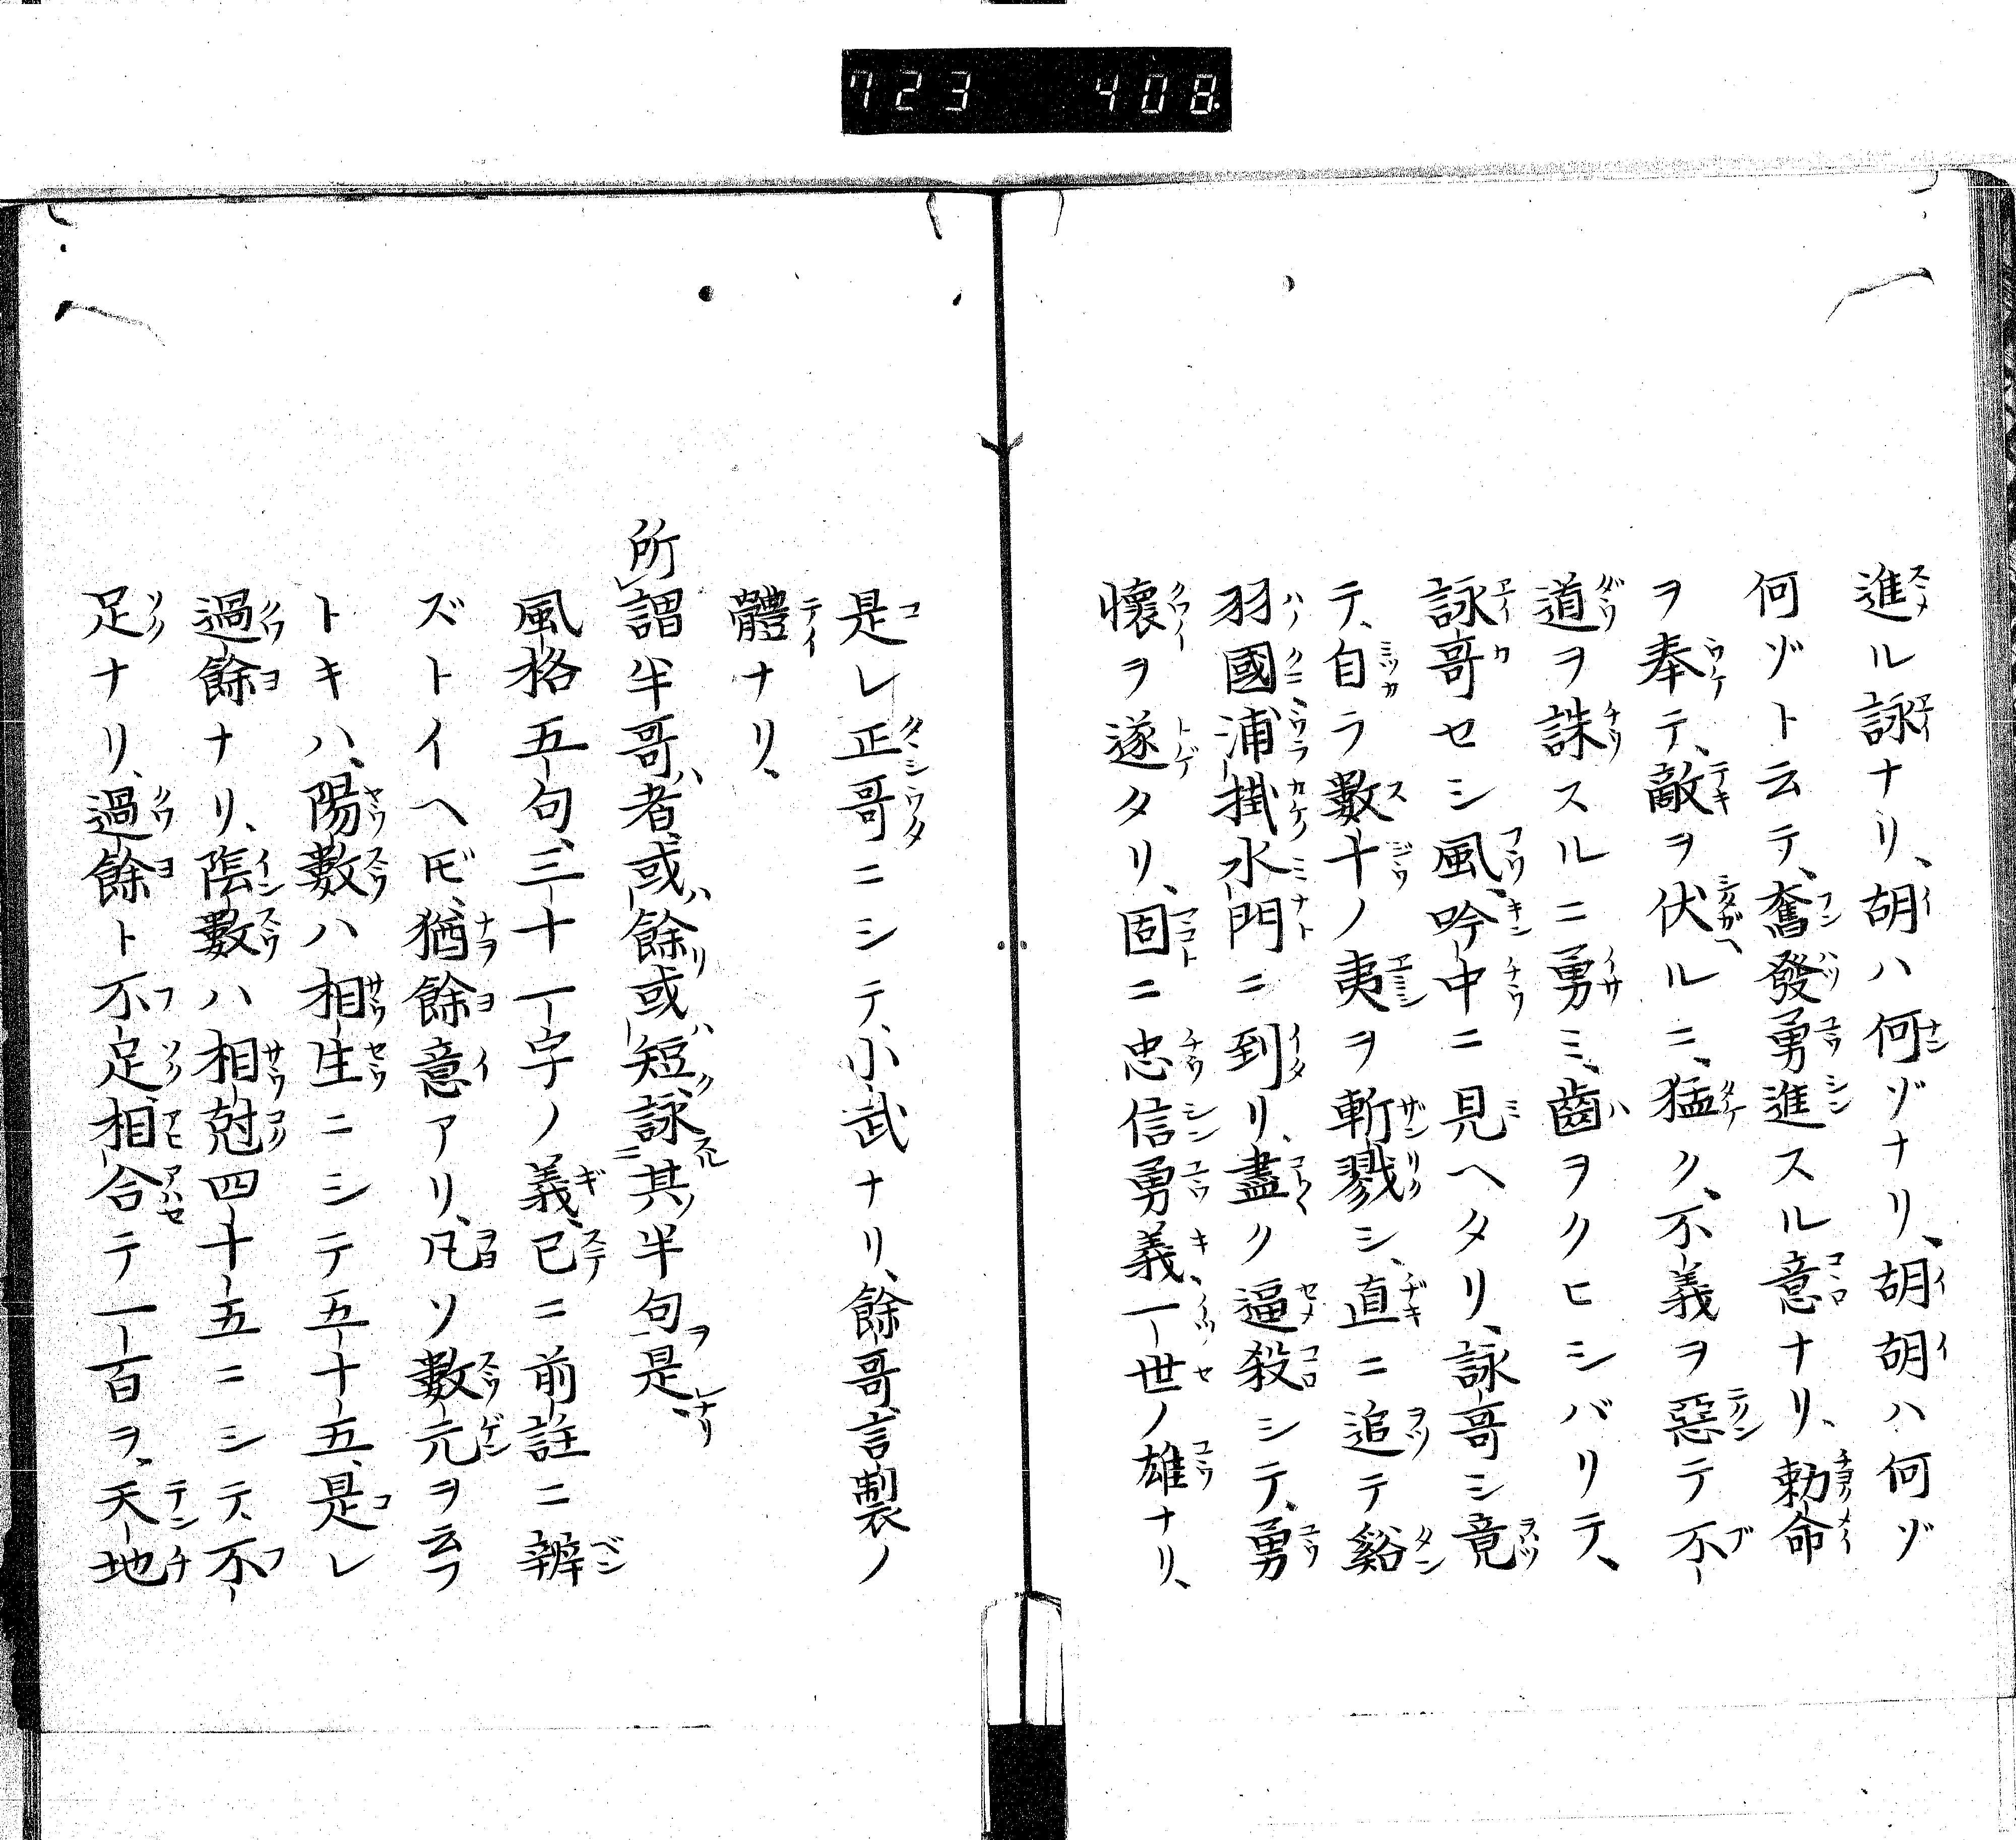 723 408
進ル詠ナリ、胡ハ何ゾナリ、胡胡ハ何ゾ
何ゾト云テ、奮發勇進スル意ナリ、勅命
ヲ奉テ、敵ヲ伏ルニ、猛ク、不義ヲ惡テ不
道ヲ誅スルニ勇ミ、齒ヲクヒシバリテ、
詠哥セシ風、吟中ニ見ヘタリ、詠哥シ竟
テ、自ラ數十ノ夷ヲ斬戮シ、直ニ追テ谿
羽國浦掛水門ニ到リ、盡ク逼殺シテ、勇
懷ヲ遂タリ、固ニ忠信勇義、一世ノ雄ナリ、
是レ正哥ニシテ、小武ナリ、餘哥、言製ノ
體ナリ、
所謂半哥者、或餘或短、詠其半句是
風格五句、三十一字ノ義、已ニ前註ニ辨
ズトイヘ𪜈、猶餘意アリ、凡ソ數元ヲ云フ
トキハ、陽數ハ相生ニシテ五十五、是レ
過餘ナリ、陰數ハ相尅四十五ニシテ、不
足ナリ、過餘ト不足、相合テ一百ヲ、天地